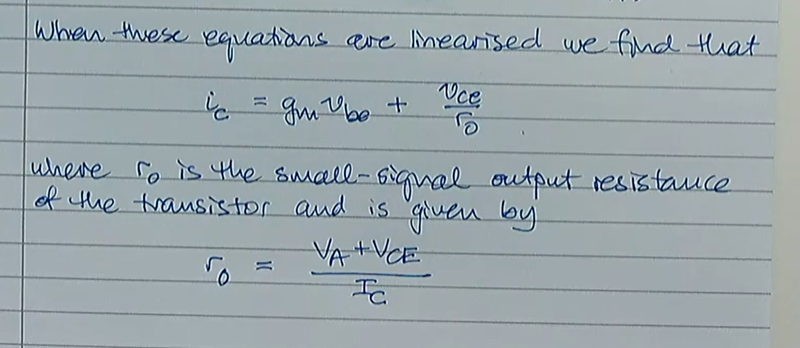 When these equations are linearised we find that
i_c = g_m v_be + v_ce/r_o
where r_o is the small-signal output resistance
of the transistor and is given by
r_o = (V_A + V_CE)/I_C